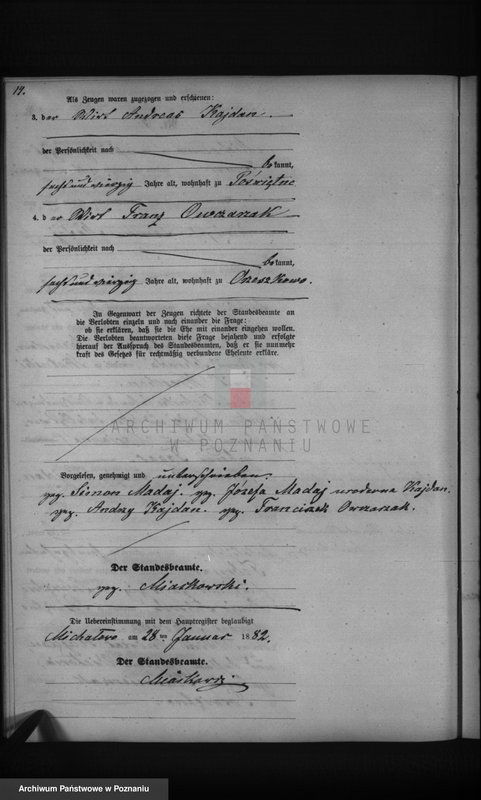 14.
Als Zeugen waren zugezogen und erschienen:
3. der Wirt Andreas Kajdan
der Persönlichkeit nach
bekannt,
sechs und vierzig Jahre alt, wohnhaft zu Poświętne
4. der Wirt Franz Owczarzak
der Persönlichkeit nach
bekannt,
sechs und vierzig Jahre alt, wohnhaft zu Orzeszkowo.
In Gegenwart der Zeugen richtete der Standesbeamte an
die Verlobten einzeln und nach einander die Frage:
ob sie erklären, daß sie die Ehe mit einander eingehen wollen.
Die Verlobten beantworteten diese Frage bejahend und erfolgte
hierauf der Ausspruch des Standesbeamten, daß er sie nunmehr
kraft des Gesetzes für rechtmäßig verbundene Eheleute erkläre.
ARCHIWUM PAŃSTWOWE
W POZNANIU
Vorgelesen, genehmigt und unterschrieben.
gez. Simon Madaj. gez. Józefa Madaj urodzona Kajdan.
gez. Andrzy Kajdan. gez. Franciszek Owczarzak.
Der Standesbeamte.
gez. Miaskowski.
Die Uebereinstimmung mit dem Hauptregister beglaubigt
am 28ten Januar 1882.
Der Standesbeamte.
Miaskowski
Archiwum Państwowe w Poznaniu